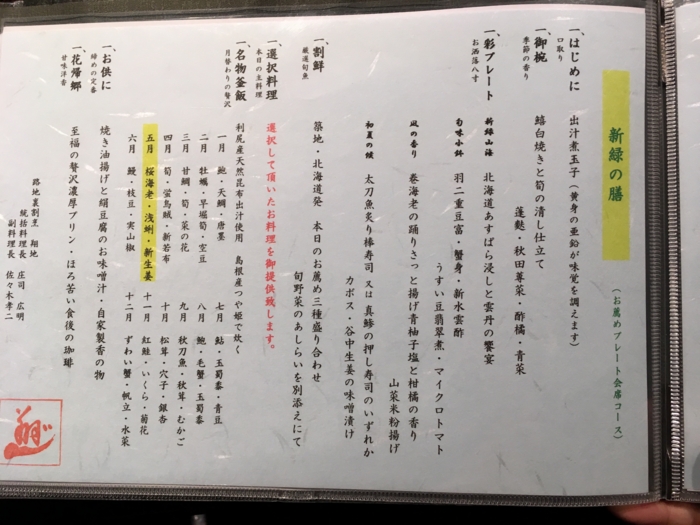 新緑の膳
(お薦めプレート会席コース)
一、はじめに
口取り
出汁煮玉子(黄身の亜鉛が味覚を調えます)
一、御椀
季節の香り
鱚白焼きと筍の清し仕立て
蓬麩・秋田蓴菜・酢橘・青菜
一、彩プレート
お洒落八寸
新緑山海
北海道あすぱら浸しと雲丹の饗宴
うすい豆翡翠煮・マイクロトマト
旬味小鉢
羽二重豆富・蟹身・新水雲酢
凪の香り
巻海老の踊りさっと揚げ青柚子塩と柑橘の香り
山菜米粉揚げ
初夏の候
太刀魚炙り棒寿司又は真鯵の押し寿司のいずれか
カボス・谷中生姜の味噌漬け
一、割鮮
厳選旬魚
築地・北海道発 本日のお薦め三種盛り合わせ
旬野菜のあしらいを別添えにて
一、選択料理
本日の主料理
選択して頂いたお料理を御提供致します。
一、名物釜飯
月替わりの贅沢
利尻産天然昆布出汁使用 島根産つや姫で炊く
一月 鮑・天鯛・唐墨
七月 鮎・玉蜀黍・青豆
二月 牡蠣・早堀筍・空豆
八月 鮑・毛蟹・玉蜀黍
三月 甘鯛・筍・菜の花
九月 秋刀魚・秋茸・むかご
四月 筍・蛍烏賊・新若布
十月 松茸・穴子・銀杏
五月 桜海老・浅蜊・新生姜
十一月 紅鮭・いくら・菊花
六月 鰻・枝豆・実山椒
十二月 ずわい蟹・帆立・水菜
一、お供に
締めの定番
焼き油揚げと絹豆腐のお味噌汁・自家製香の物
一、花帰郷
甘味洋香
至福の贅沢濃厚プリン・ほろ苦い食後の珈琲
路地裏割烹 翔地
統括料理長 庄司 広明
副料理長 佐々木孝二